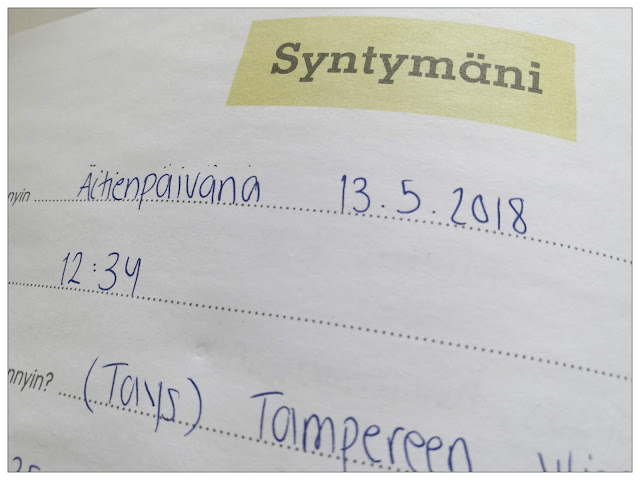 Syntymäni
nyin Äitienpäivänä 13.5.2018
12:34
nnyin? (Tays) Tampereen